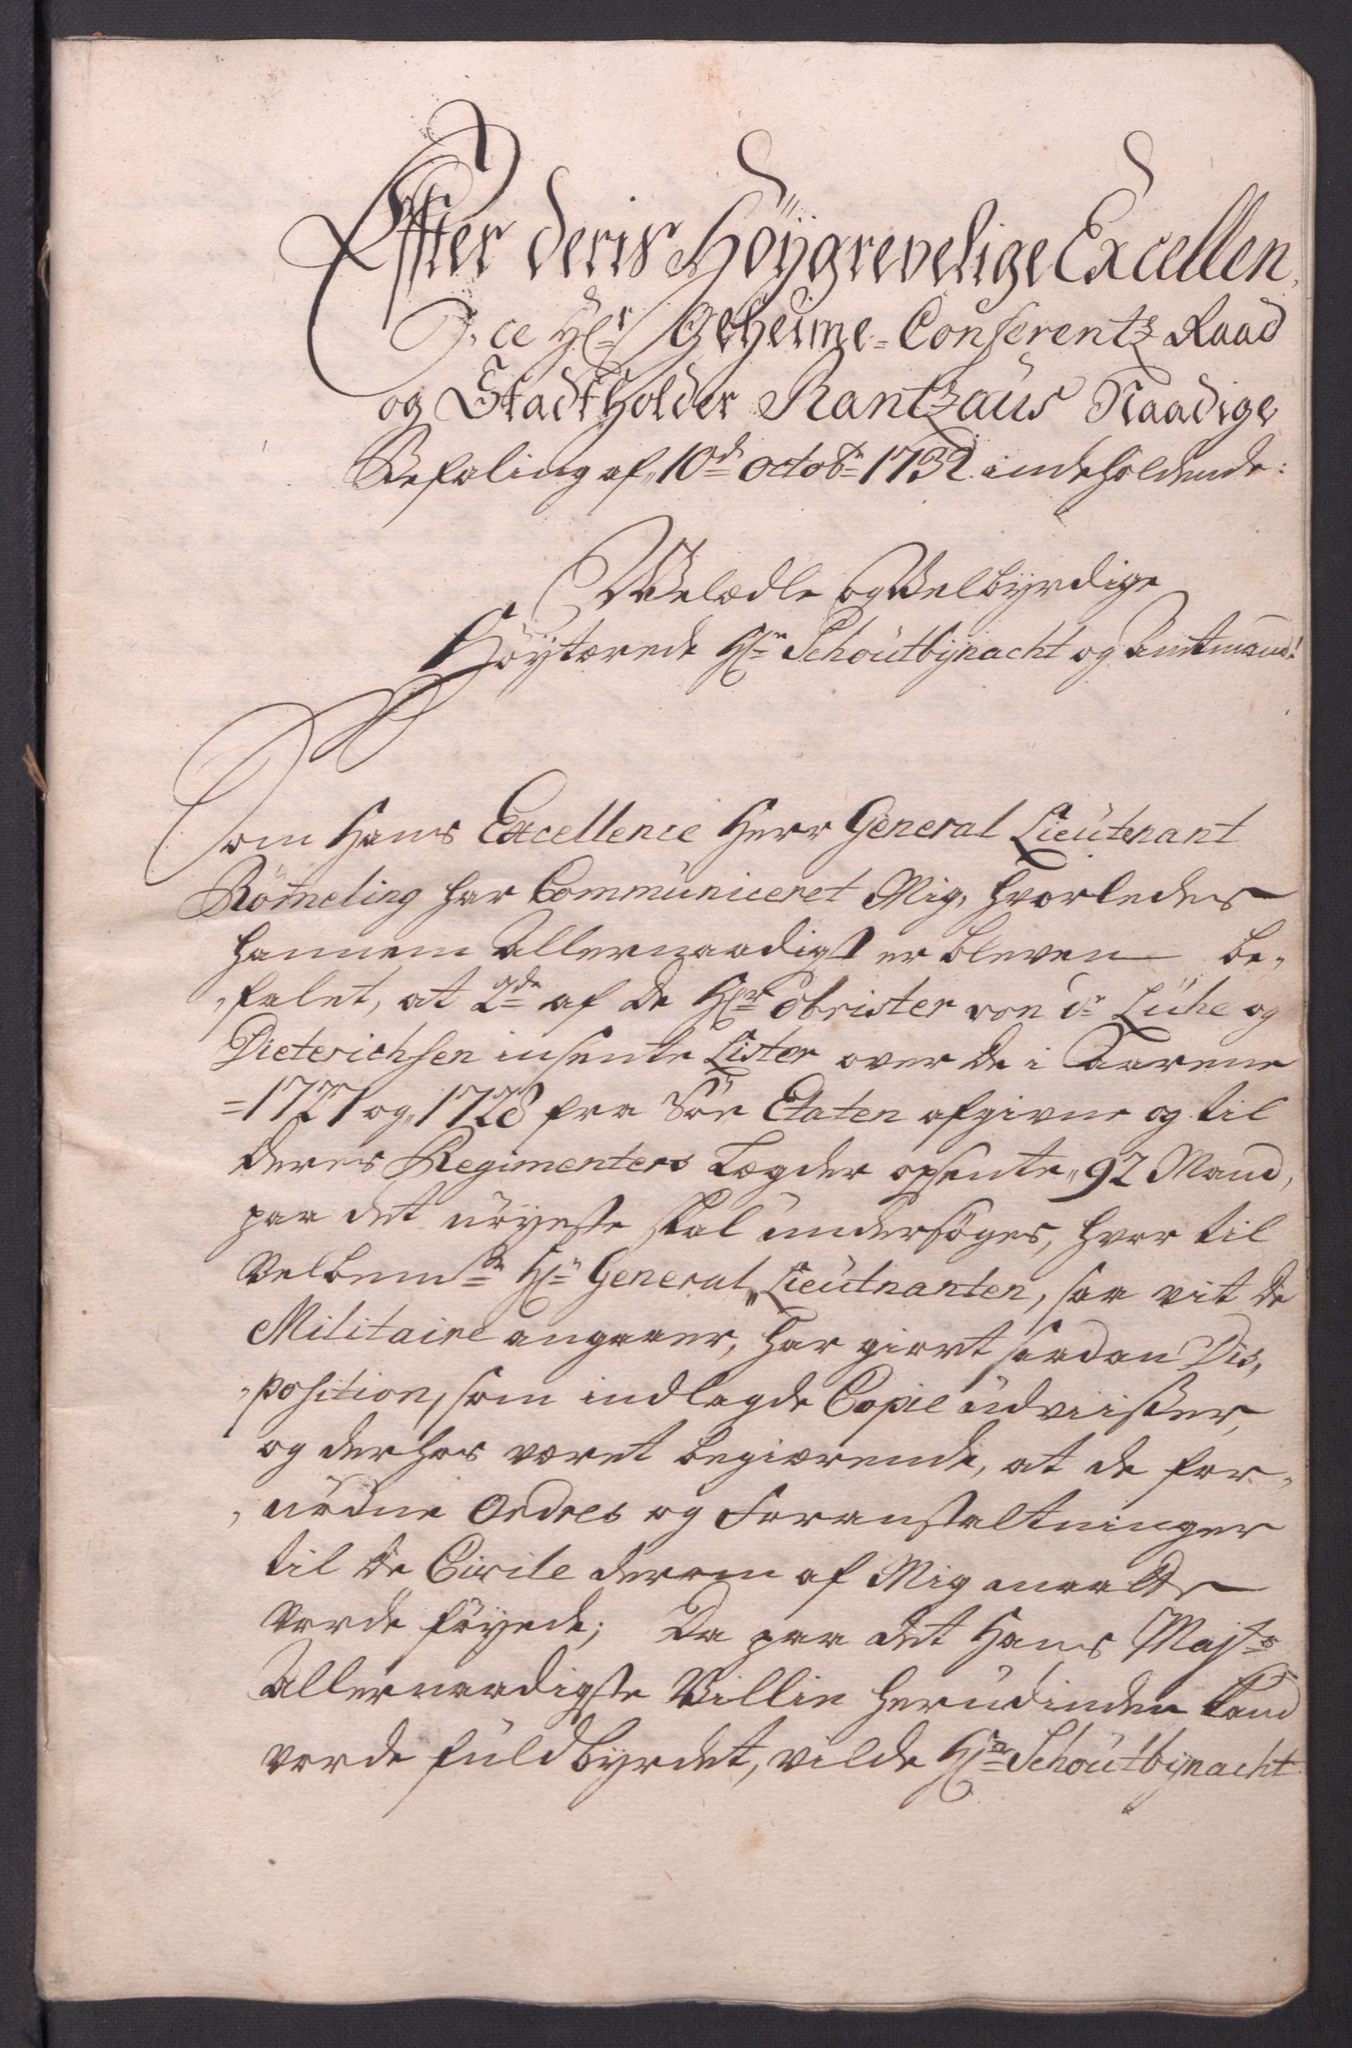 Effter deris Höygrevelige Excellen,
,ce Hr: Geheime-Conferentz Raad
og Stadtholder Rantzaus Naadige
Befaling af 10de octobr 1732 indeholdende:
Welædle og Velbyrdige
Höytærede Hr: Schoutbynacht og Amtmand!
Som Hans Excellence Herr General Lieutenant
Römeling har Communiceret Mig, hvorledes
hannem Allernaadigst er bleven be-
-falet, at 2de af de Hrr: Obrister von dr Lühe og
Dieterichsen insente Lister over de i Aarene
=1727 og 1728 fra Söe Etaten afgivne og til
deres Regimenters Lægder opsente 92 Mand,
paa det nöyeste skal undersöges, hvor til
Velbemte Hr: General Lieutnanten, saa vit de
Militaire angaaer, har giort saadan Dis,
-position, som indlagde Copie udviißer,
og derhos været begiærende, at de for-
,nödne Ordres og Foranstaltninger
til de Civile derom af Mig maatte
vorde föyede; Da paa det Hans Majts
Allernaadigste Villie herudinden kand
vorde fuldbyrdet, vilde Hr: Schoutbynacht